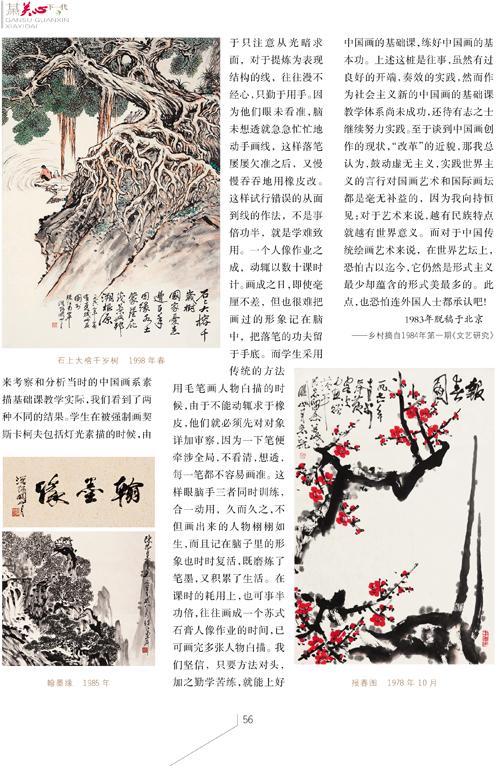 某关心下一代
GANSU GUANXIN
XIAYIDAI
石上大榕千岁树 1998年春
来考察和分析当时的中国画系素
描基础课教学实际,我们看到了两
种不同的结果。学生在被强制画契
斯卡柯夫包括灯光素描的时候,由
翰墨缘
翰墨缘 1985年
于只注意从光暗求
面,对于提炼为表现
结构的线,往往漫不
经心,只勤于用手。因
为他们眼未看准,脑
未想透就急急忙忙地
动手画线,这样落笔
屡屡欠准之后,又慢
慢吞吞地用橡皮改。
这样试行错误的从面
到线的作法,不是事
倍功半,就是学难致
用。一个人像作业之
成,动辄以数十课时
计。画成之日,即使毫
厘不差,但也很难把
画过的形象记在脑
中,把落笔的功夫留
于手底。而学生采用
传统的方法
用毛笔画人物白描的时
候,由于不能动辄求于橡
皮,他们就必须先对对象
详加审察,因为一下笔便
牵涉全局,不看清,想透,
每一笔都不容易画准。这
样眼脑手三者同时训练,
合一动用,久而久之,不
但画出来的人物栩栩如
生,而且记在脑子里的形
象也时时复活,既磨炼了
笔墨,又积累了生活。在
课时的耗用上,也可事半
功倍,往往画成一个苏式
石膏人像作业的时间,已
可画完多张人物白描。我
们坚信,只要方法对头,
加之勤学苦练,就能上好
中国画的基础课,练好中国画的基
本功。上述这桩是往事,虽然有过
良好的开端,奏效的实践,然而作
为社会主义新的中国画的基础课
教学体系尚未成功,还待有志之士
继续努力实践。至于谈到中国画创
作的现状,“改革”的近貌,那我总
认为,鼓动虚无主义,实践世界主
义的言行对国画艺术和国际画坛
都是毫无补益的,因为我向持恒
见:对于艺术来说,越有民族特点
就越有世界意义。而对于中国传
统绘画艺术来说,在世界艺坛上,
恐怕古以迄今,它仍然是形式主义
最少却蕴含的形式美最多的。此
点,也恐怕连外国人士都承认吧!
1983年脱稿于北京
——乡村摘自1984年第一期《文艺研究》
报春图
报春图 1978年10月
56